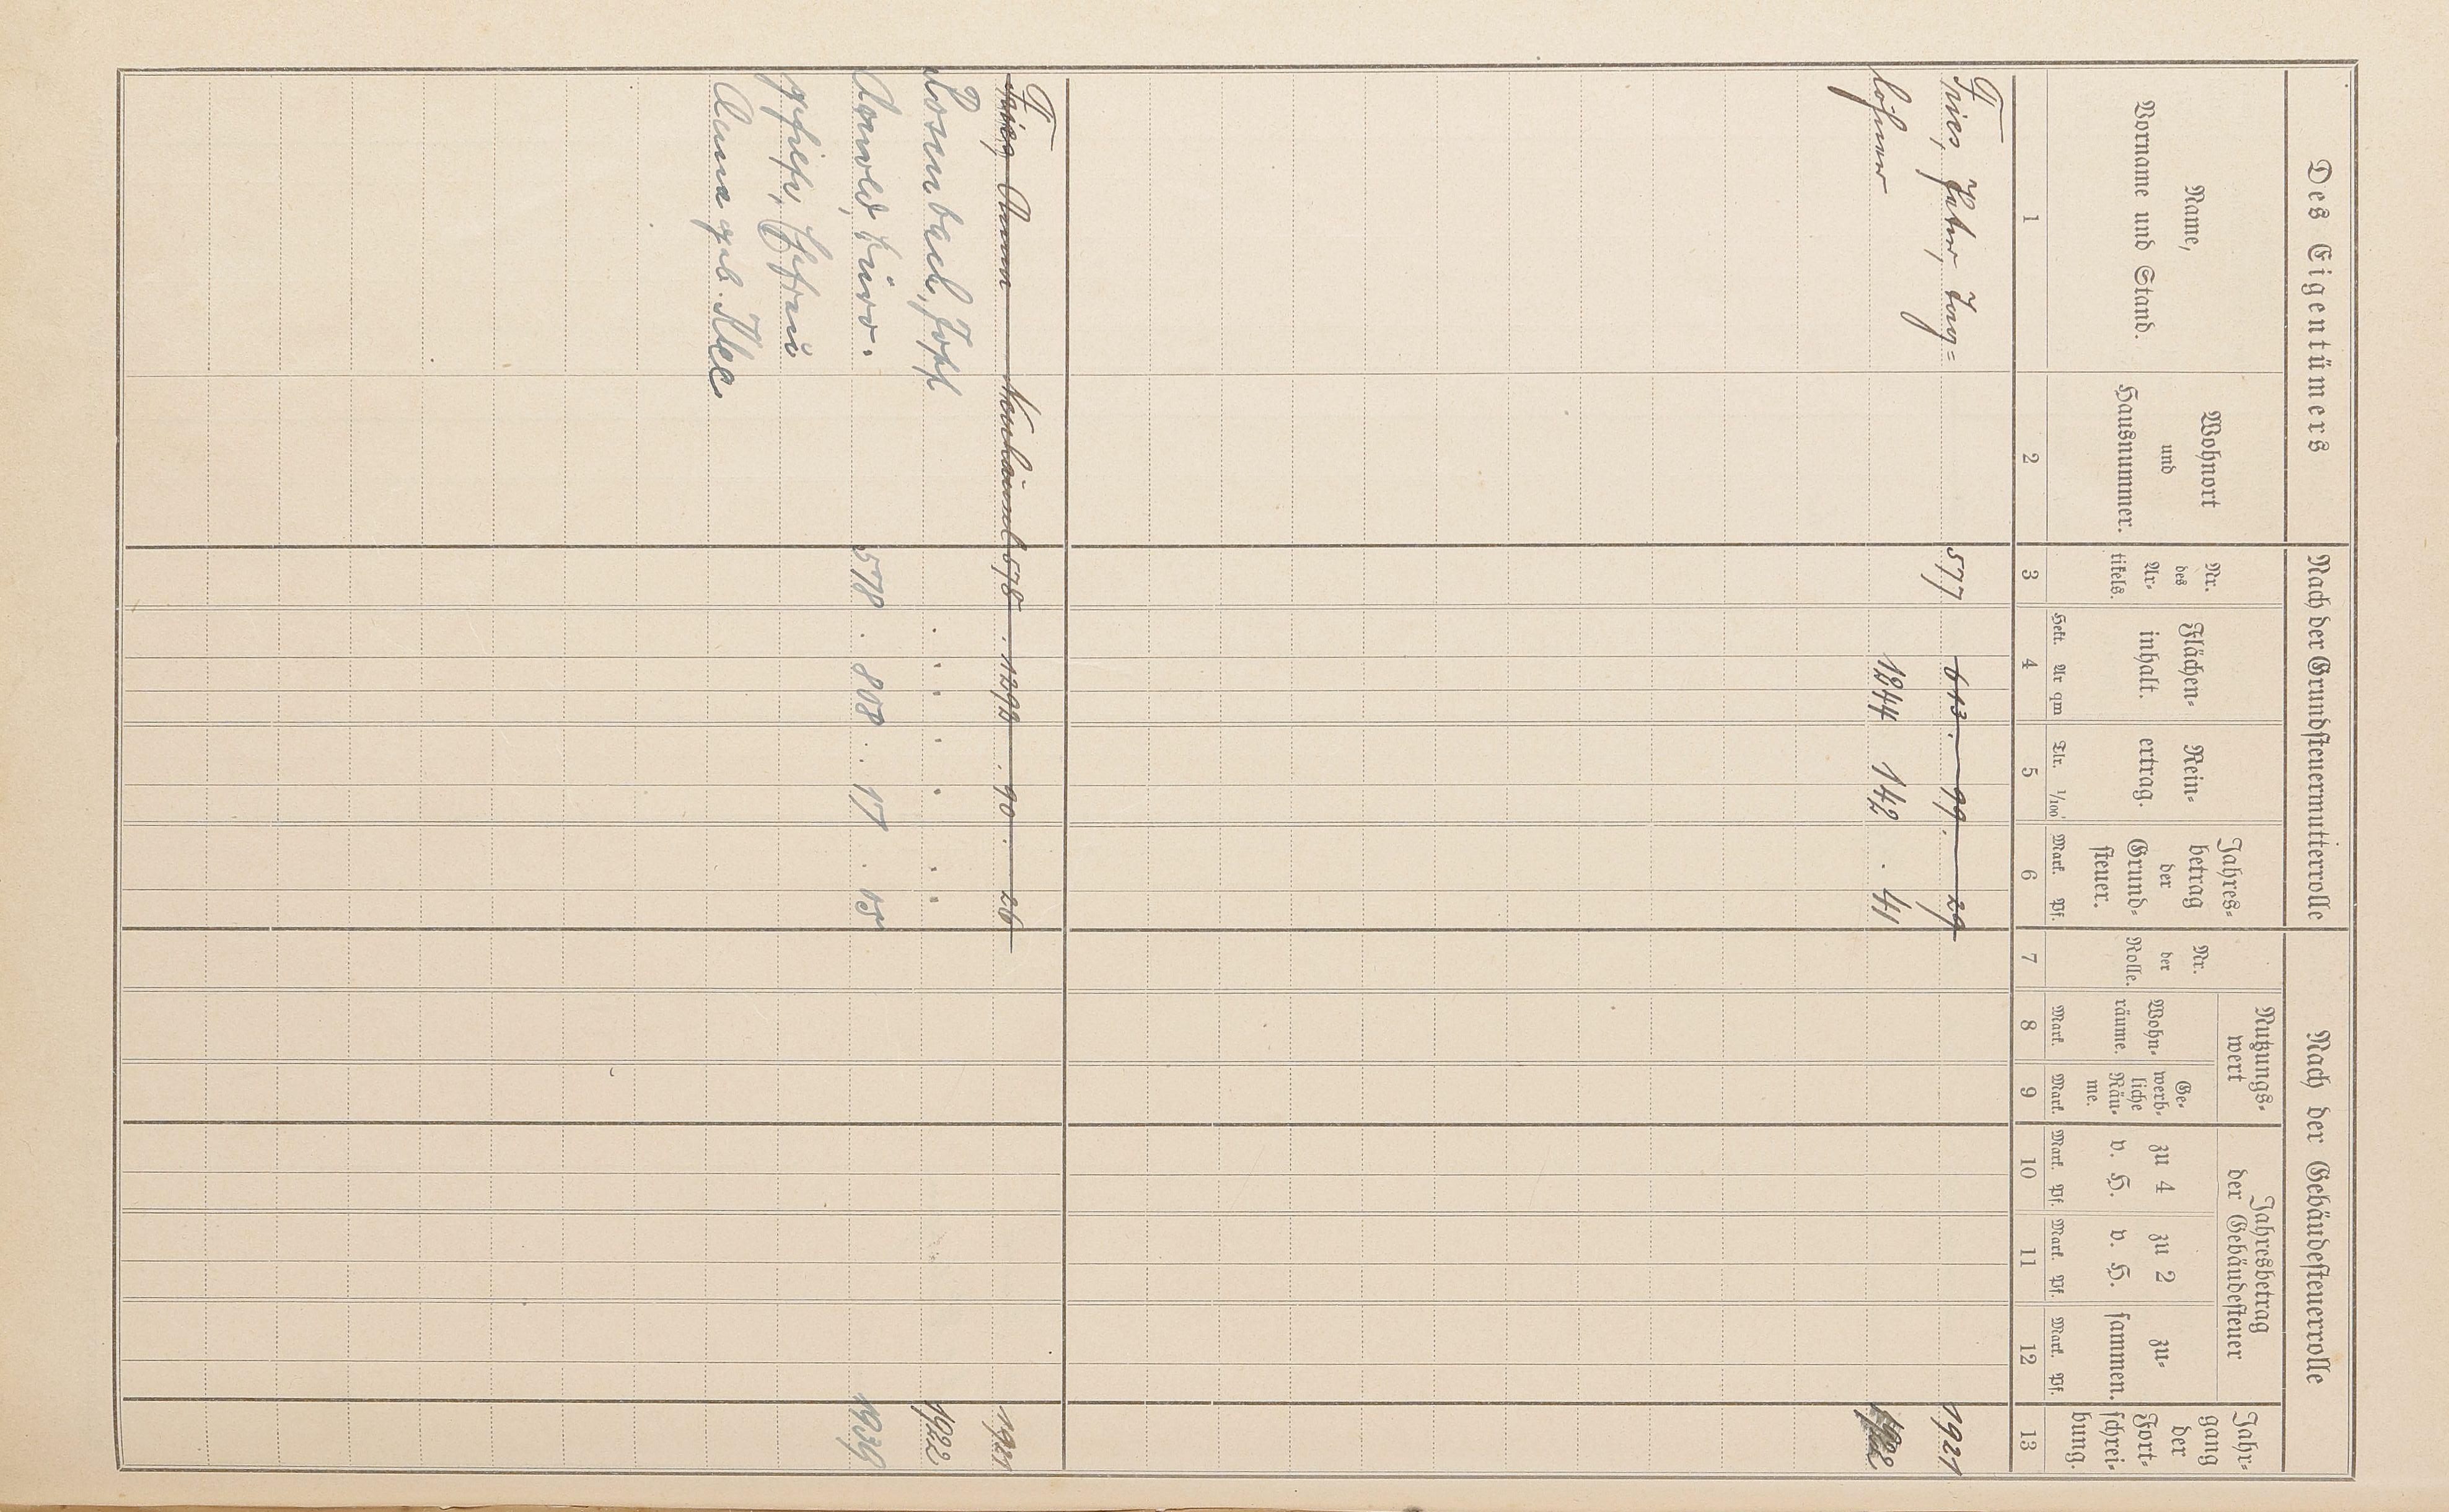 Des Eigentümers
Nach der Grundsteuermutterrolle
Nach der Gebäudesteuerrolle
Name,
Vorname und Stand.
Wohnort
und
Hausnummer.
Nr.
des
Ar-
tikels.
Flächen-
inhalt.
Rein-
ertrag.
Jahres-
betrag
der
Grund-
steuer.
Nr.
der
Rolle.
Nutzungs-
wert
Wohn-
räume.
Ge-
werb-
liche
Räu-
me.
Jahresbetrag
der Gebäudesteuer
zu 4
v. H.
zu 2
v. H.
zu-
sammen.
Jahr-
gang
der
Fort-
schrei-
bung.
Hekt. Ar qm Tlr. 1/100 Mark. Pf. Mark. Mark. Mark. Pf. Mark. Pf. Mark. Pf.
1 2 3 4 5 6 7 8 9 10 11 12 13
Fries, Peter, Tag= 577 613 . 99 . 29 1921
löhner 1244 142 . 41
Fries Anna 578 . 1292 . 90 . 26 1921
Rosenbach, Joh 1922
Arnold, 578 . 808 . . 17 . 15 1939
Ehefrau
Anna geb. Klee